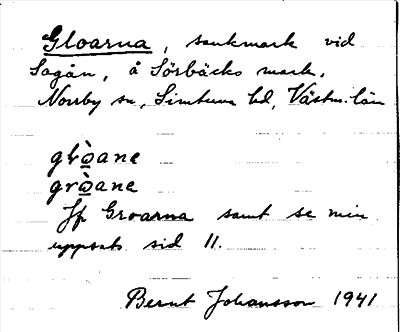 Gloarna, sankmark vid
Sagån, å Sörbäcks mark,
Norrby sn, Simtuna hd, Västm. län
glò̲ane
grò̲ane
Jfr Groarna samt se min
uppsats sid 11.
Bernt Johansson 1941